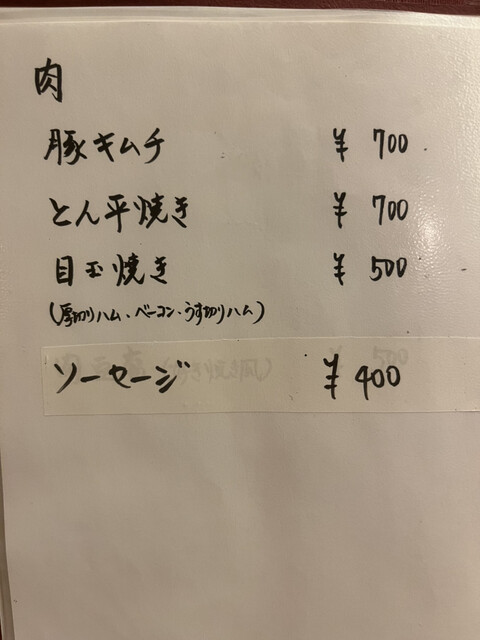 肉
豚キムチ ¥ 700
とん平焼き ¥ 700
目玉焼き ¥ 500
(厚切りハム・ベーコン・うす切りハム)
ソーセージ ¥ 400